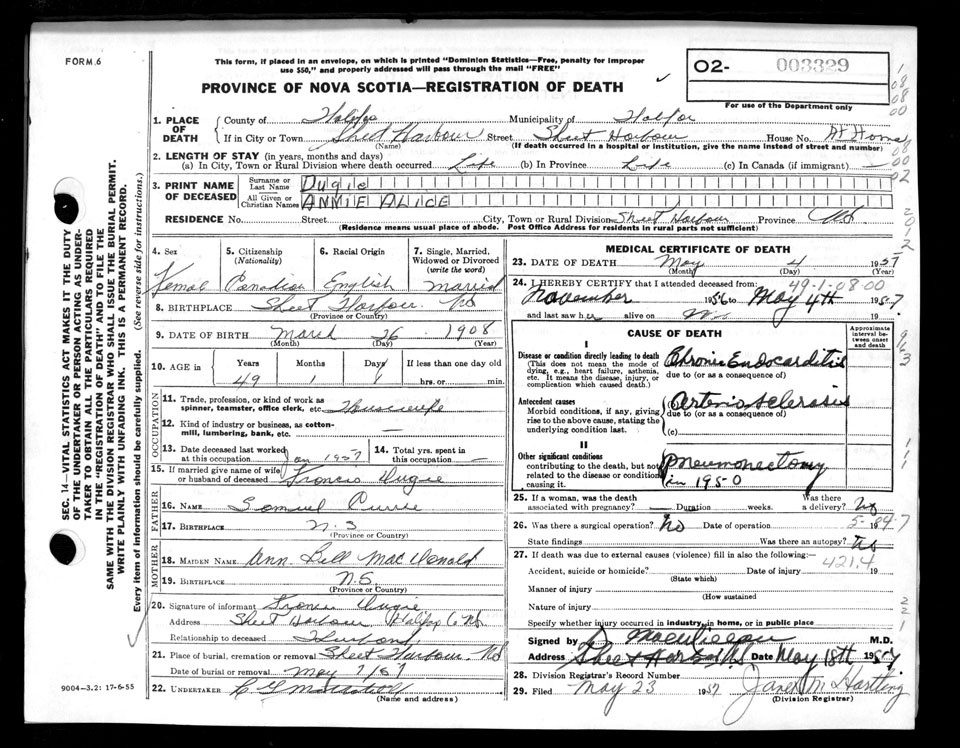 FORM.6
This form, if placed in an envelope, on which is printed "Dominion Statistics—Free, penalty for improper
use $50," and properly addressed will pass through the mail "FREE"
02- 003329
PROVINCE OF NOVA SCOTIA—REGISTRATION OF DEATH
For use of the Department only
1. PLACE OF DEATH
County of Halifax Municipality of Halifax
If in City or Town Sheet Harbour Street Sheet Harbour House No. At Home
(Name) (If death occurred in a hospital or institution, give the name instead of street and number)
2. LENGTH OF STAY (in years, months and days)
(a) In City, Town or Rural Division where death occurred Life (b) In Province Life (c) In Canada (if immigrant) —
3. PRINT NAME OF DECEASED
Surname or Last Name Dugie
All Given or Christian Names ANNIE ALICE
RESIDENCE No. Street City, Town or Rural Division Sheet Harbour Province NS
(Residence means usual place of abode. Post Office Address for residents in rural parts not sufficient)
4. Sex
5. Citizenship (Nationality)
6. Racial Origin
7. Single, Married, Widowed or Divorced (write the word)
Female Canadian English married
8. BIRTHPLACE Sheet Harbour. NS
(Province or Country)
9. DATE OF BIRTH March 26 1908
(Month) (Day) (Year)
10. AGE
Years Months Days If less than one day old
49 1 hrs. or min.
OCCUPATION
11. Trade, profession, or kind of work as spinner, teamster, office clerk, etc. Housewife
12. Kind of industry or business, as cotton-mill, lumbering, bank, etc. —
13. Date deceased last worked at this occupation Jan 1957
14. Total yrs. spent in this occupation —
15. If married give name of wife or husband of deceased Francis Dugie
FATHER
16. NAME Samuel
17. BIRTHPLACE N.S
(Province or Country)
MOTHER
18. MAIDEN NAME Ann Bell MacDonald
19. BIRTHPLACE N.S.
(Province or Country)
20. Signature of informant Francis Dugie
Address Sheet Harbour Halifax Co NS
Relationship to deceased Husband
21. Place of burial, cremation or removal Sheet Harbour. NS
Date of burial or removal May 7/57
22. UNDERTAKER
(Name and address)
9004—3.2: 17-6-55
MEDICAL CERTIFICATE OF DEATH
23. DATE OF DEATH May 4 1957
(Month) (Day) (Year)
49-1-08-00
24. I HEREBY CERTIFY that I attended deceased from:
November 1956 to May 4th 1957
and last saw her alive on 19
CAUSE OF DEATH
Approximate interval between onset and death
I
Disease or condition directly leading to death
(This does not mean the mode of dying, e.g., heart failure, asthenia, etc. It means the disease, injury, or complication which caused death.)
Chronic Endocarditis
due to (or as a consequence of)
Antecedent causes
Morbid conditions, if any, giving rise to the above cause, stating the underlying condition last.
(b) Arteriosclerosis
due to (or as a consequence of)
(c)
II
Other significant conditions
contributing to the death, but not related to the disease or condition causing it.
Pneumonectomy
in 1950
25. If a woman, was the death associated with pregnancy? — Duration weeks. Was there a delivery? No
26. Was there a surgical operation? No Date of operation 19
State findings Was there an autopsy? No
27. If death was due to external causes (violence) fill in also the following:—
421.4
Accident, suicide or homicide? Date of injury 19
(State which)
Manner of injury
(How sustained)
Nature of injury
Specify whether injury occurred in industry, in home, or in public place
Signed by M.D.
Address Sheet Harbour NS Date May 18th 1957
28. Division Registrar's Record Number
29. Filed May 23 1957 Janet M Hartling
(Division Registrar)
SEC. 14—VITAL STATISTICS ACT MAKES IT THE DUTY
OF THE UNDERTAKER OR PERSON ACTING AS UNDER-
TAKER TO OBTAIN ALL THE PARTICULARS REQUIRED
IN THE "REGISTRATION OF DEATH" AND TO FILE THE
SAME WITH THE DIVISION REGISTRAR WHO SHALL ISSUE THE BURIAL PERMIT.
WRITE PLAINLY WITH UNFADING INK. THIS IS A PERMANENT RECORD.
Every item of information should be carefully supplied. (See reverse side for instructions.)